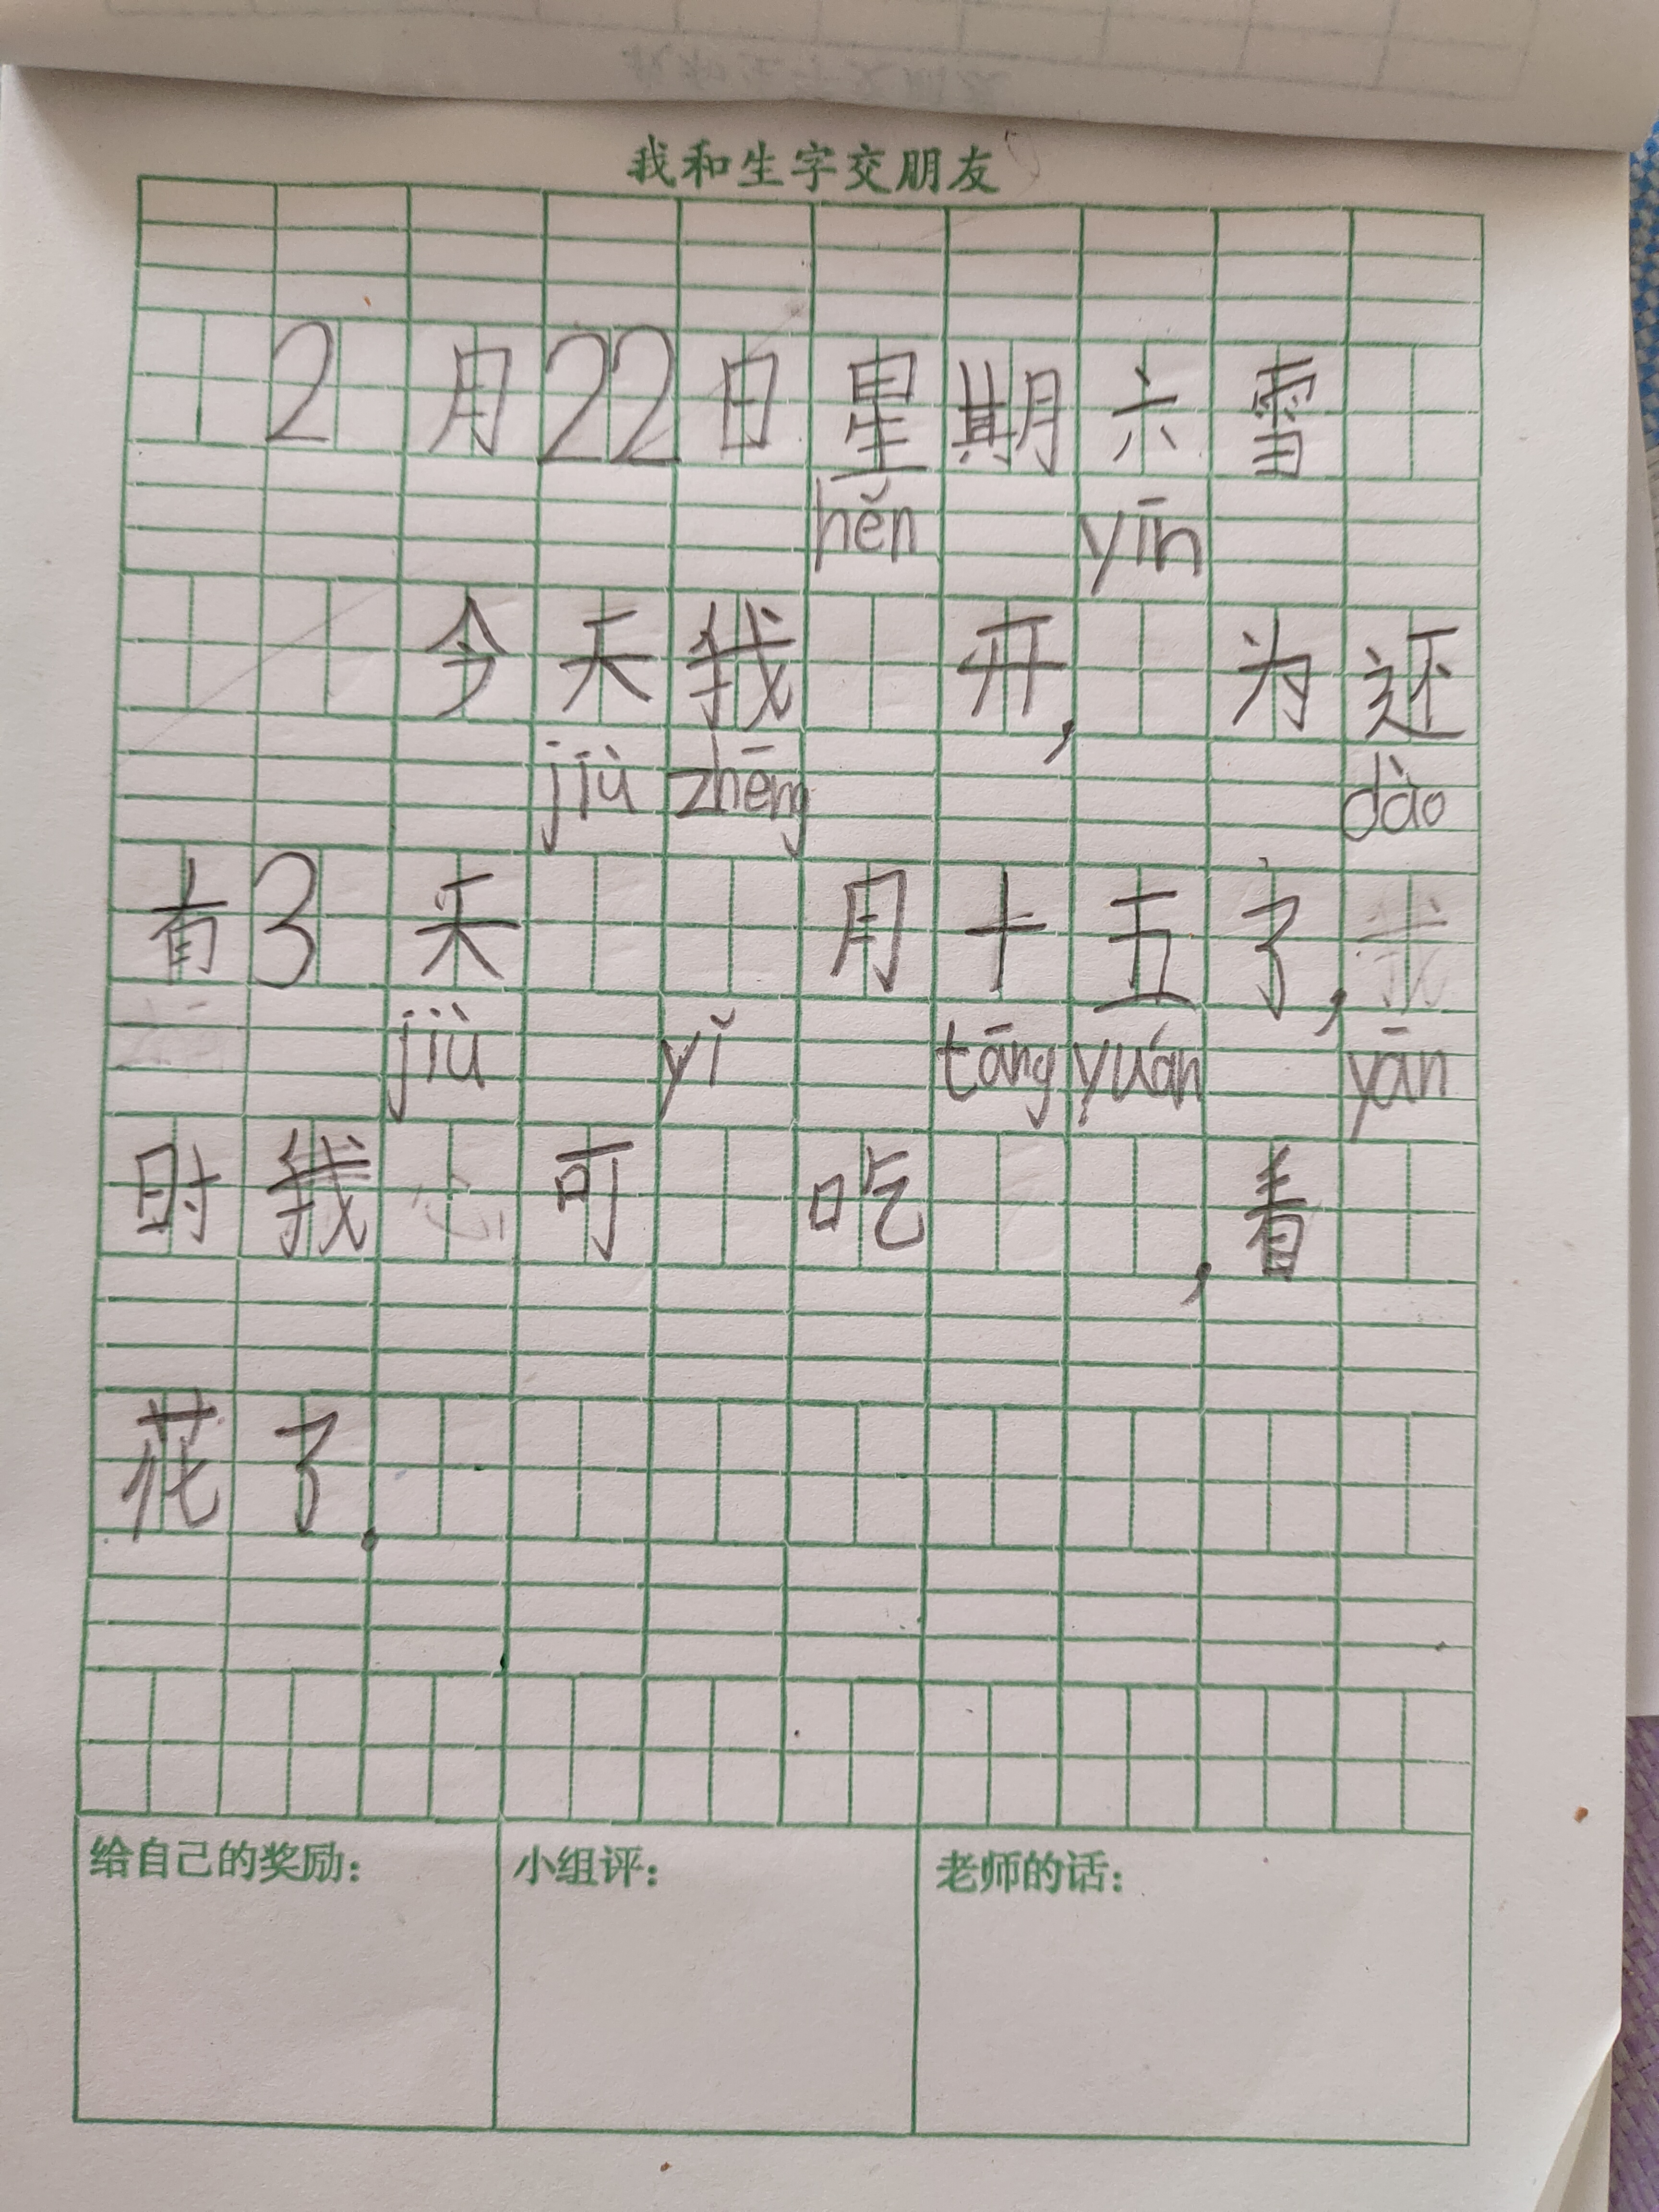 我和生字交朋友
2月22日星期六雪
hěn yīn
今天我 开, 为还
jiù zhēng dào
有3天 月十五了,我
jiù yǐ tāng yuán yān
时我心可 吃 ,看
花了.
给自己的奖励: 小组评: 老师的话: